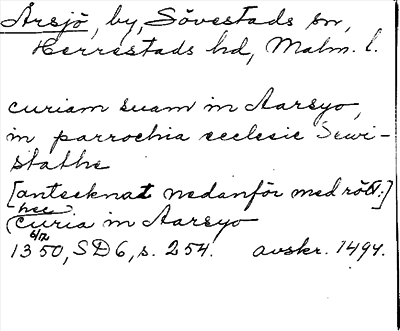 Årsjö, by, Sövestads sn,
Herrestads hd, Malm. l.
curiam suam in Aarsyo,
in parrochia ecclesie Sewi-
stathe
[antecknat nedanför med rött:]
hec
(curia in Aarsyo
6/12
1350, SD 6, s. 254. avskr. 1494.